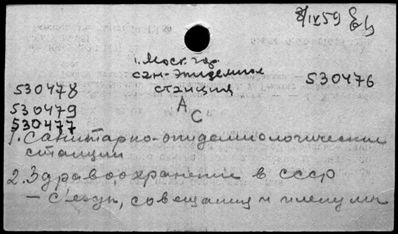 8/IX59
1. Моск. гор.
сан-эпидемиол
станция
530476
530478
530479
530477
А
С
1. Санитарно-эпидемиологические
станции
2. Здравоохранение в СССР
- Съезды, совещания и пленумы